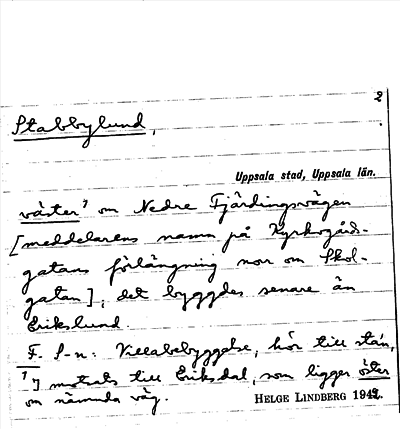 2.
Stabbylund,
Uppsala stad, Uppsala län.
väster¹ om Nedre Fjärdingsvägen
[meddelarens namn på Kyrkogårds-
gatans förlängning norr om Skol-
gatan], det byggdes senare än
Erikslund.
F. S-n: Villabebyggelse, hör till stan,
¹) motsats till Eriksdal, som ligger öster
om nämnda väg.
HELGE LINDBERG 1942.